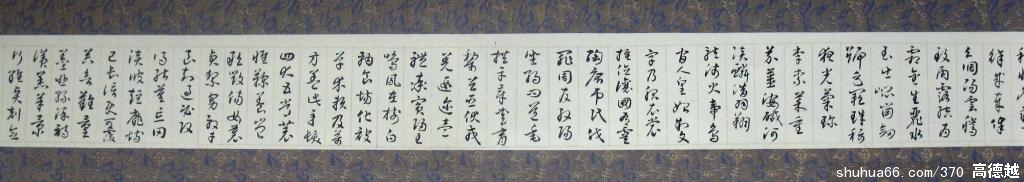 餘成歲律
呂調陽雲騰
致雨露結為
霜金生麗水
玉出崑崗劍
號巨闕珠稱
夜光菓珍
李柰菜重
芥薑海鹹河
淡鱗潛羽翔
龍師火帝鳥
官人皇始制文
字乃服衣裳
推位讓國有虞
陶唐弔民伐
罪周發殷湯
坐朝問道垂
拱平章愛育
黎首臣伏戎
羌遐邇壹
體率賓歸王
鳴鳳在樹白
駒食場化被
草木賴及萬
方蓋此身髮
四大五常恭
惟鞠養豈
敢毀傷女慕
貞絜男效才
良知過必改
得能莫忘罔
談彼短靡恃
己長信使可覆
器欲難量
墨悲絲染詩
讚羔羊景
行維賢剋念
shuhua66.com/370 高德越